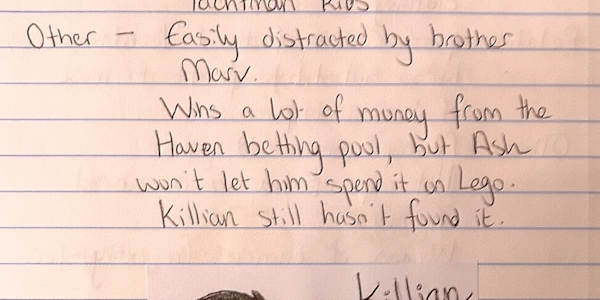 Other - Easily distracted by brother
Marv.
Wins a lot of money from the
Haven betting pool, but Ash
won't let him spend it on Lego.
Killian still hasn't found it.
Killian